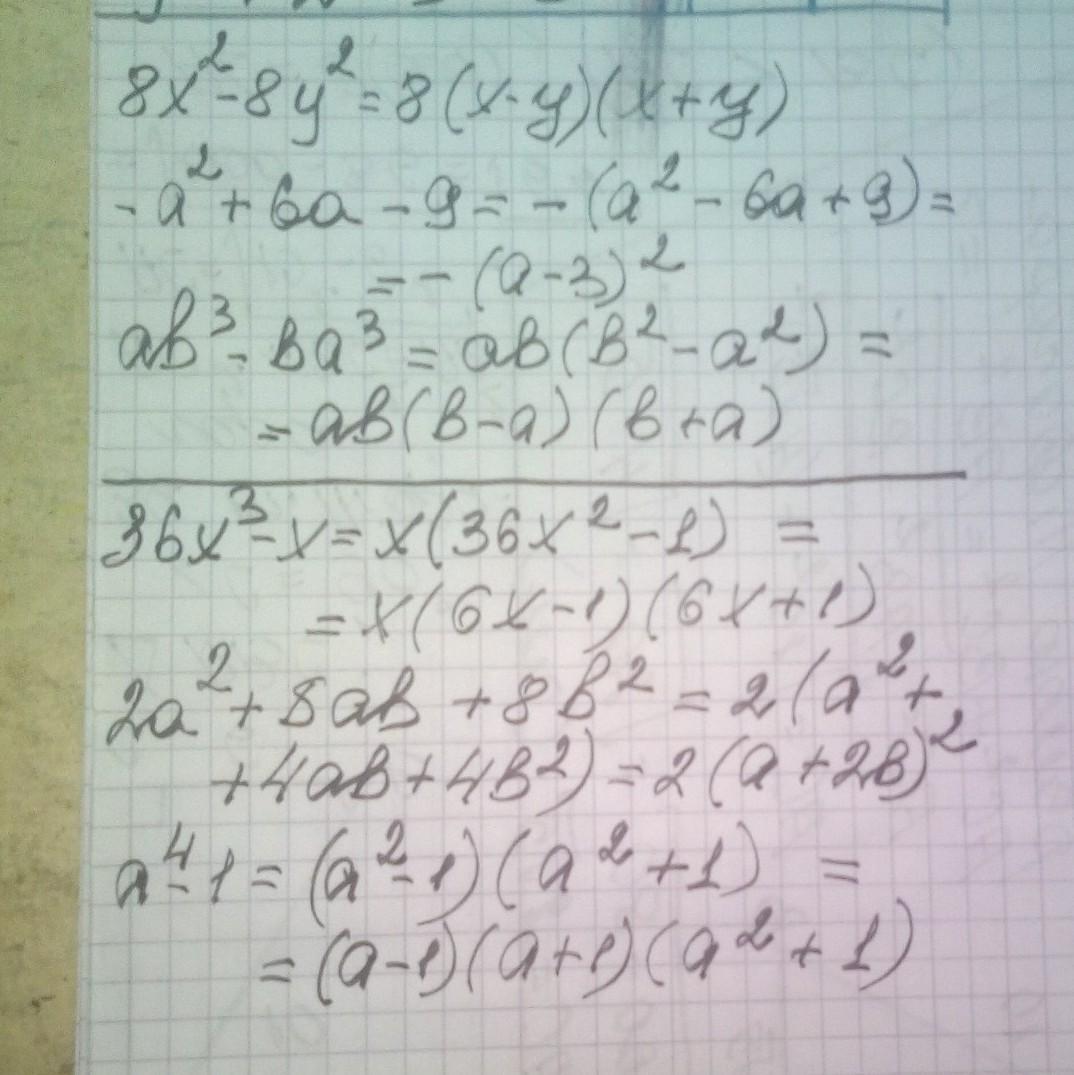 8x² - 8y² = 8(x-y)(x+y)
-a² + 6a - 9 = -(a² - 6a + 9) =
= -(a-3)²
ab³ - ba³ = ab(b² - a²) =
= ab(b-a)(b+a)
36x³ - x = x(36x² - 1) =
= x(6x-1)(6x+1)
2a² + 8ab + 8b² = 2(a² +
+ 4ab + 4b²) = 2(a + 2b)²
a⁴ - 1 = (a² - 1)(a² + 1) =
= (a-1)(a+1)(a² + 1)